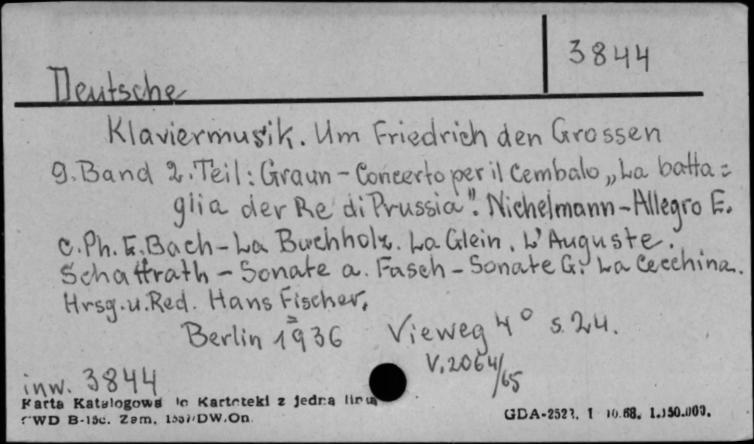 3844
Deutsche
Klaviermusik. Um Friedrich den Grossen
9. Band 2. Teil: Graun - Concerto per il Cembalo „La batta=
glia der Re di Prussia". Nichelmann - Allegro E.
C. Ph. E. Bach - La Buchholz. La Glein. L'Auguste.
Schaffrath - Sonate a. Fasch - Sonate G. La Cecchina.
Hrsg. u. Red. Hans Fischer.
Berlin 1936 Vieweg 4° s. 24.
V. 2064/65
inw. 3844
Karta Katalogowa do Kartoteki z jedną linią
CWD B-15c. Zam. DW.On. GDA-2523. 1 10.68. 1.150.000.